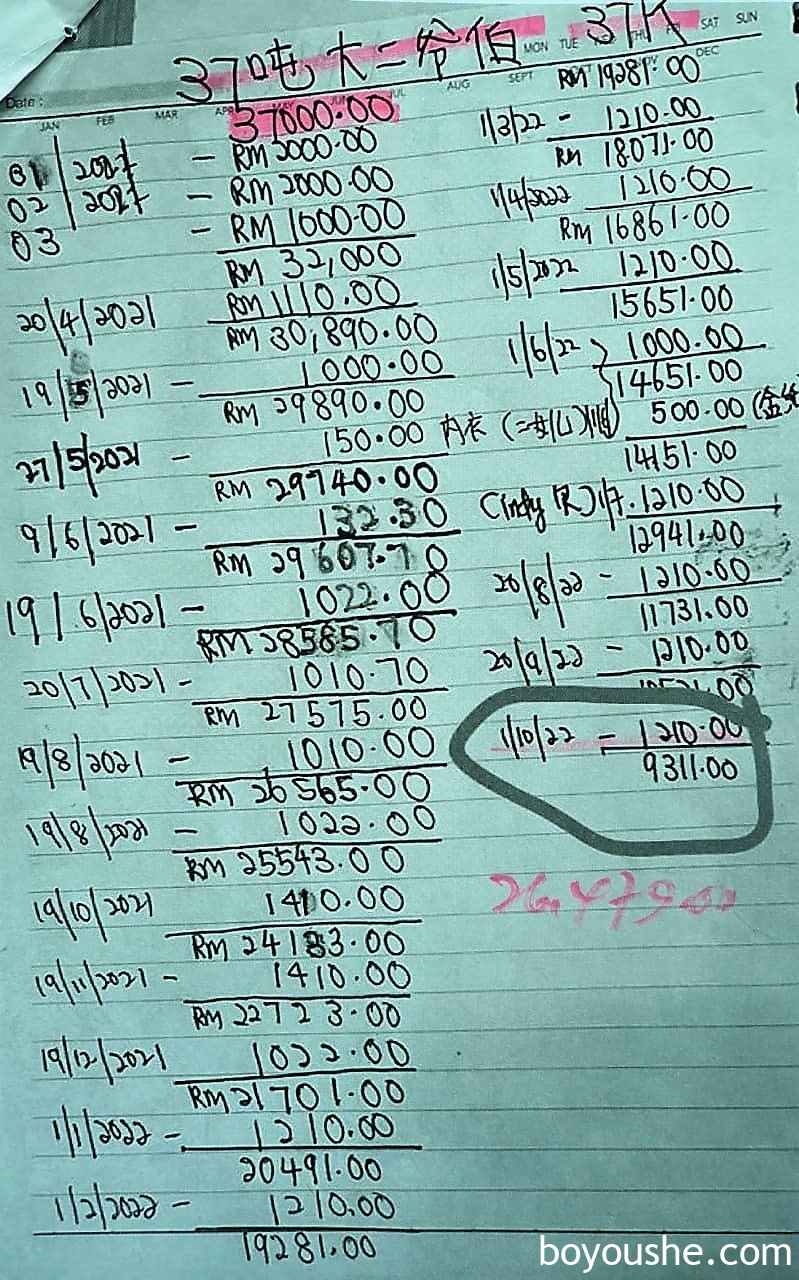 37吨大二爷伯 37K
Date :
MON TUE THU FRI SAT SUN
JAN FEB MAR APR MAY JUN JUL AUG SEPT NOV DEC
37000.00
01 / 2021 - RM 2000.00
02 / 2021 - RM 2000.00
03 - RM 1000.00
RM 32,000
20/4/2021 RM 1110.00
RM 30,890.00
19/5/2021 - 1000.00
RM 29890.00
27/5/2021 - 150.00
RM 29740.00
9/6/2021 - 132.30
RM 29607.70
19/6/2021 - 1022.00
RM 28585.70
20/7/2021 - 1010.70
RM 27575.00
19/8/2021 - 1010.00
RM 26565.00
19/8/2021 - 1022.00
RM 25543.00
19/10/2021 1410.00
RM 24133.00
19/11/2021 - 1410.00
RM 22723.00
19/12/2021 1022.00
RM 21701.00
1/1/2022 - 1210.00
20491.00
1/2/2022 - 1210.00
19281.00
RM 19281.00
1/3/22 - 1210.00
RM 18071.00
1/4/2022 1210.00
RM 16861.00
1/5/2022 1210.00
15651.00
1/6/22 1000.00
14651.00
内衣 500.00
14151.00
Cindy (R) 1/7. 1210.00
12941.00
20/8/22 - 1210.00
11731.00
20/9/22 - 1210.00
1/10/22 - 1210.00
9311.00
26,479.00
boyoushe.com